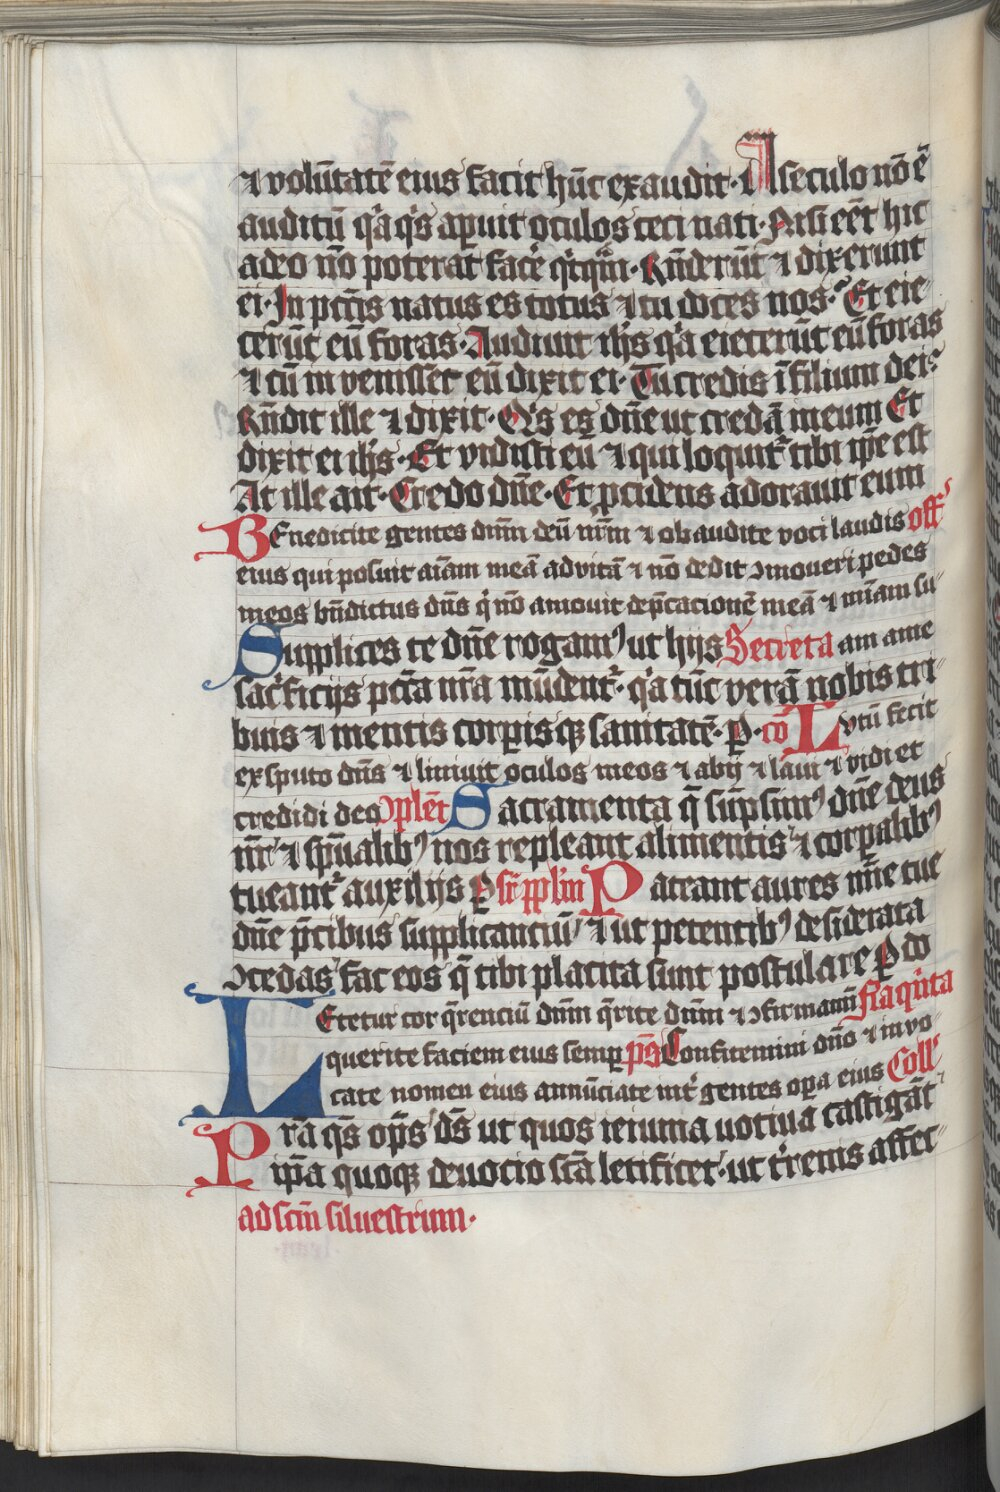 ⁊ volūtatē eius facit hūc exaudit· A seculo nō ē
auditū q̇a q̇s aꝑuit oculos ceci nati· Nisi eēt hic
a deo nō poterat face᷑ q̇cq̄m· Rn̄derūt ⁊ dixerunt
ei· In pctīs natus es totus ⁊ tu doces nos· Et eie-
cerūt eū foras· Audiuit ihs̄ q̇a eiecerūt eū foras
⁊ cū in venisset eū dixit ei· Tu credis ī filium dei·
Rn̄dit ille ⁊ dixit· Q̇s es dn̄e ut credā in eum Et
dixit ei ihs̄· Et vidisti eū ⁊ qui loquit᷑ tibi ip̄e est
At ille ait· Credo dn̄e· Et ꝓcidens adorauit eum
BEnedicite gentes dnm̄ deū nr̄m ⁊ obaudite voci laudis off᷑
eius qui posuit aīam meā ad vitā ⁊ nō dedit ↄmoueri pedes
meos bn̄dictus dn̄s q̇ nō amouit dep̄cacionē meā ⁊ mīam su-
Supplices te dn̄e rogamꝰ ut hijs Secreta am a me
sac᷑ficijs pctā nr̄a mūdent᷑· q̇a tūc verā nobis tri-
buis ⁊ mentis corꝑisqꝫ sanitatē· ꝑ· cō Lutū fecit
ex sputo dn̄s ⁊ liniuit oculos meos ⁊ abij ⁊ laui ⁊ vidi et
credidi deo ↄplēt Sacramenta q̄ sūpsimꝰ dn̄e deus
nr̄ ⁊ sp̄ualibꝰ nos repleant alimentis ⁊ corꝑalibꝰ
tueant᷑ auxilijs ꝑ sr̄ ppl̄m Pateant aures mīe tue
dn̄e p̄cibus supplicanciū ⁊ ut petentibꝰ desiderata
ↄcedas fac eos q̄ tibi placita sunt postulare ꝑ do
LEtetur cor q̄renciū dnm̄ q̄rite dnm̄ ⁊ ↄfirmamī fia qu̇ta
querite faciem eius semꝑ ps̄ Confitemini dn̄o ⁊ invo-
cate nomen eius annūciate int᷑ gentes oꝑa eius Coll᷑
Pr̄a q̄s op̄s ds̄ ut quos ieiunia uotiua castigāt
ip̄a quoqꝫ deuotio sc̄a letificet· ut t᷑renis affec-
ad sc̄m siluestrum·